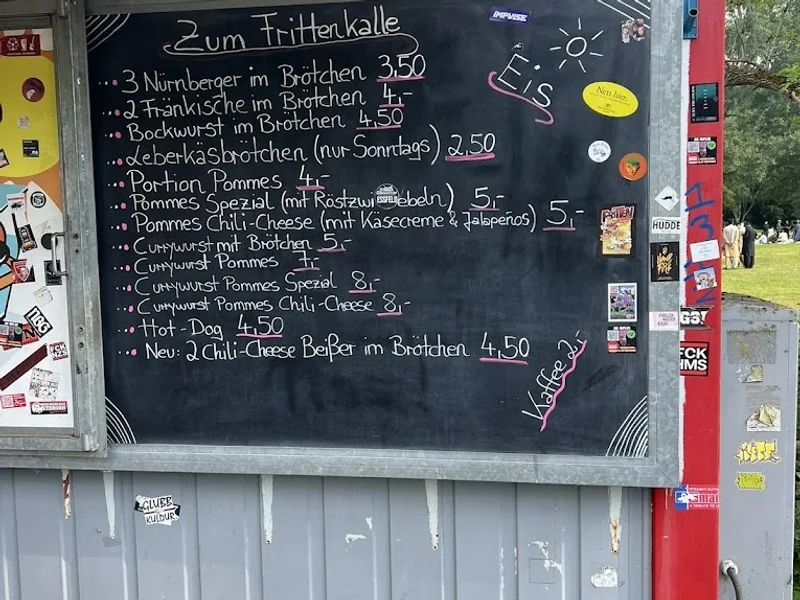 Zum Frittenkalle
3 Nürnberger im Brötchen 3,50
2 Fränkische im Brötchen 4,-
Bockwurst im Brötchen 4,50
Leberkäsbrötchen (nur Sonntags) 2,50
Portion Pommes 4,-
Pommes Spezial (mit Röstzwiebeln) 5,-
Pommes Chili-Cheese (mit Käsecreme & Jalapeños) 5,-
Currywurst mit Brötchen 5,-
Currywurst Pommes 7,-
Currywurst Pommes Spezial 8,-
Currywurst Pommes Chili-Cheese 8,-
Hot-Dog 4,50
Neu: 2 Chili-Cheese Beißer im Brötchen 4,50
Eis
Kaffee 2,-
IMPVISE
Nett hier.
ESSFELD
HUDDE
FCK
HMS
GLUBB
KULDUR